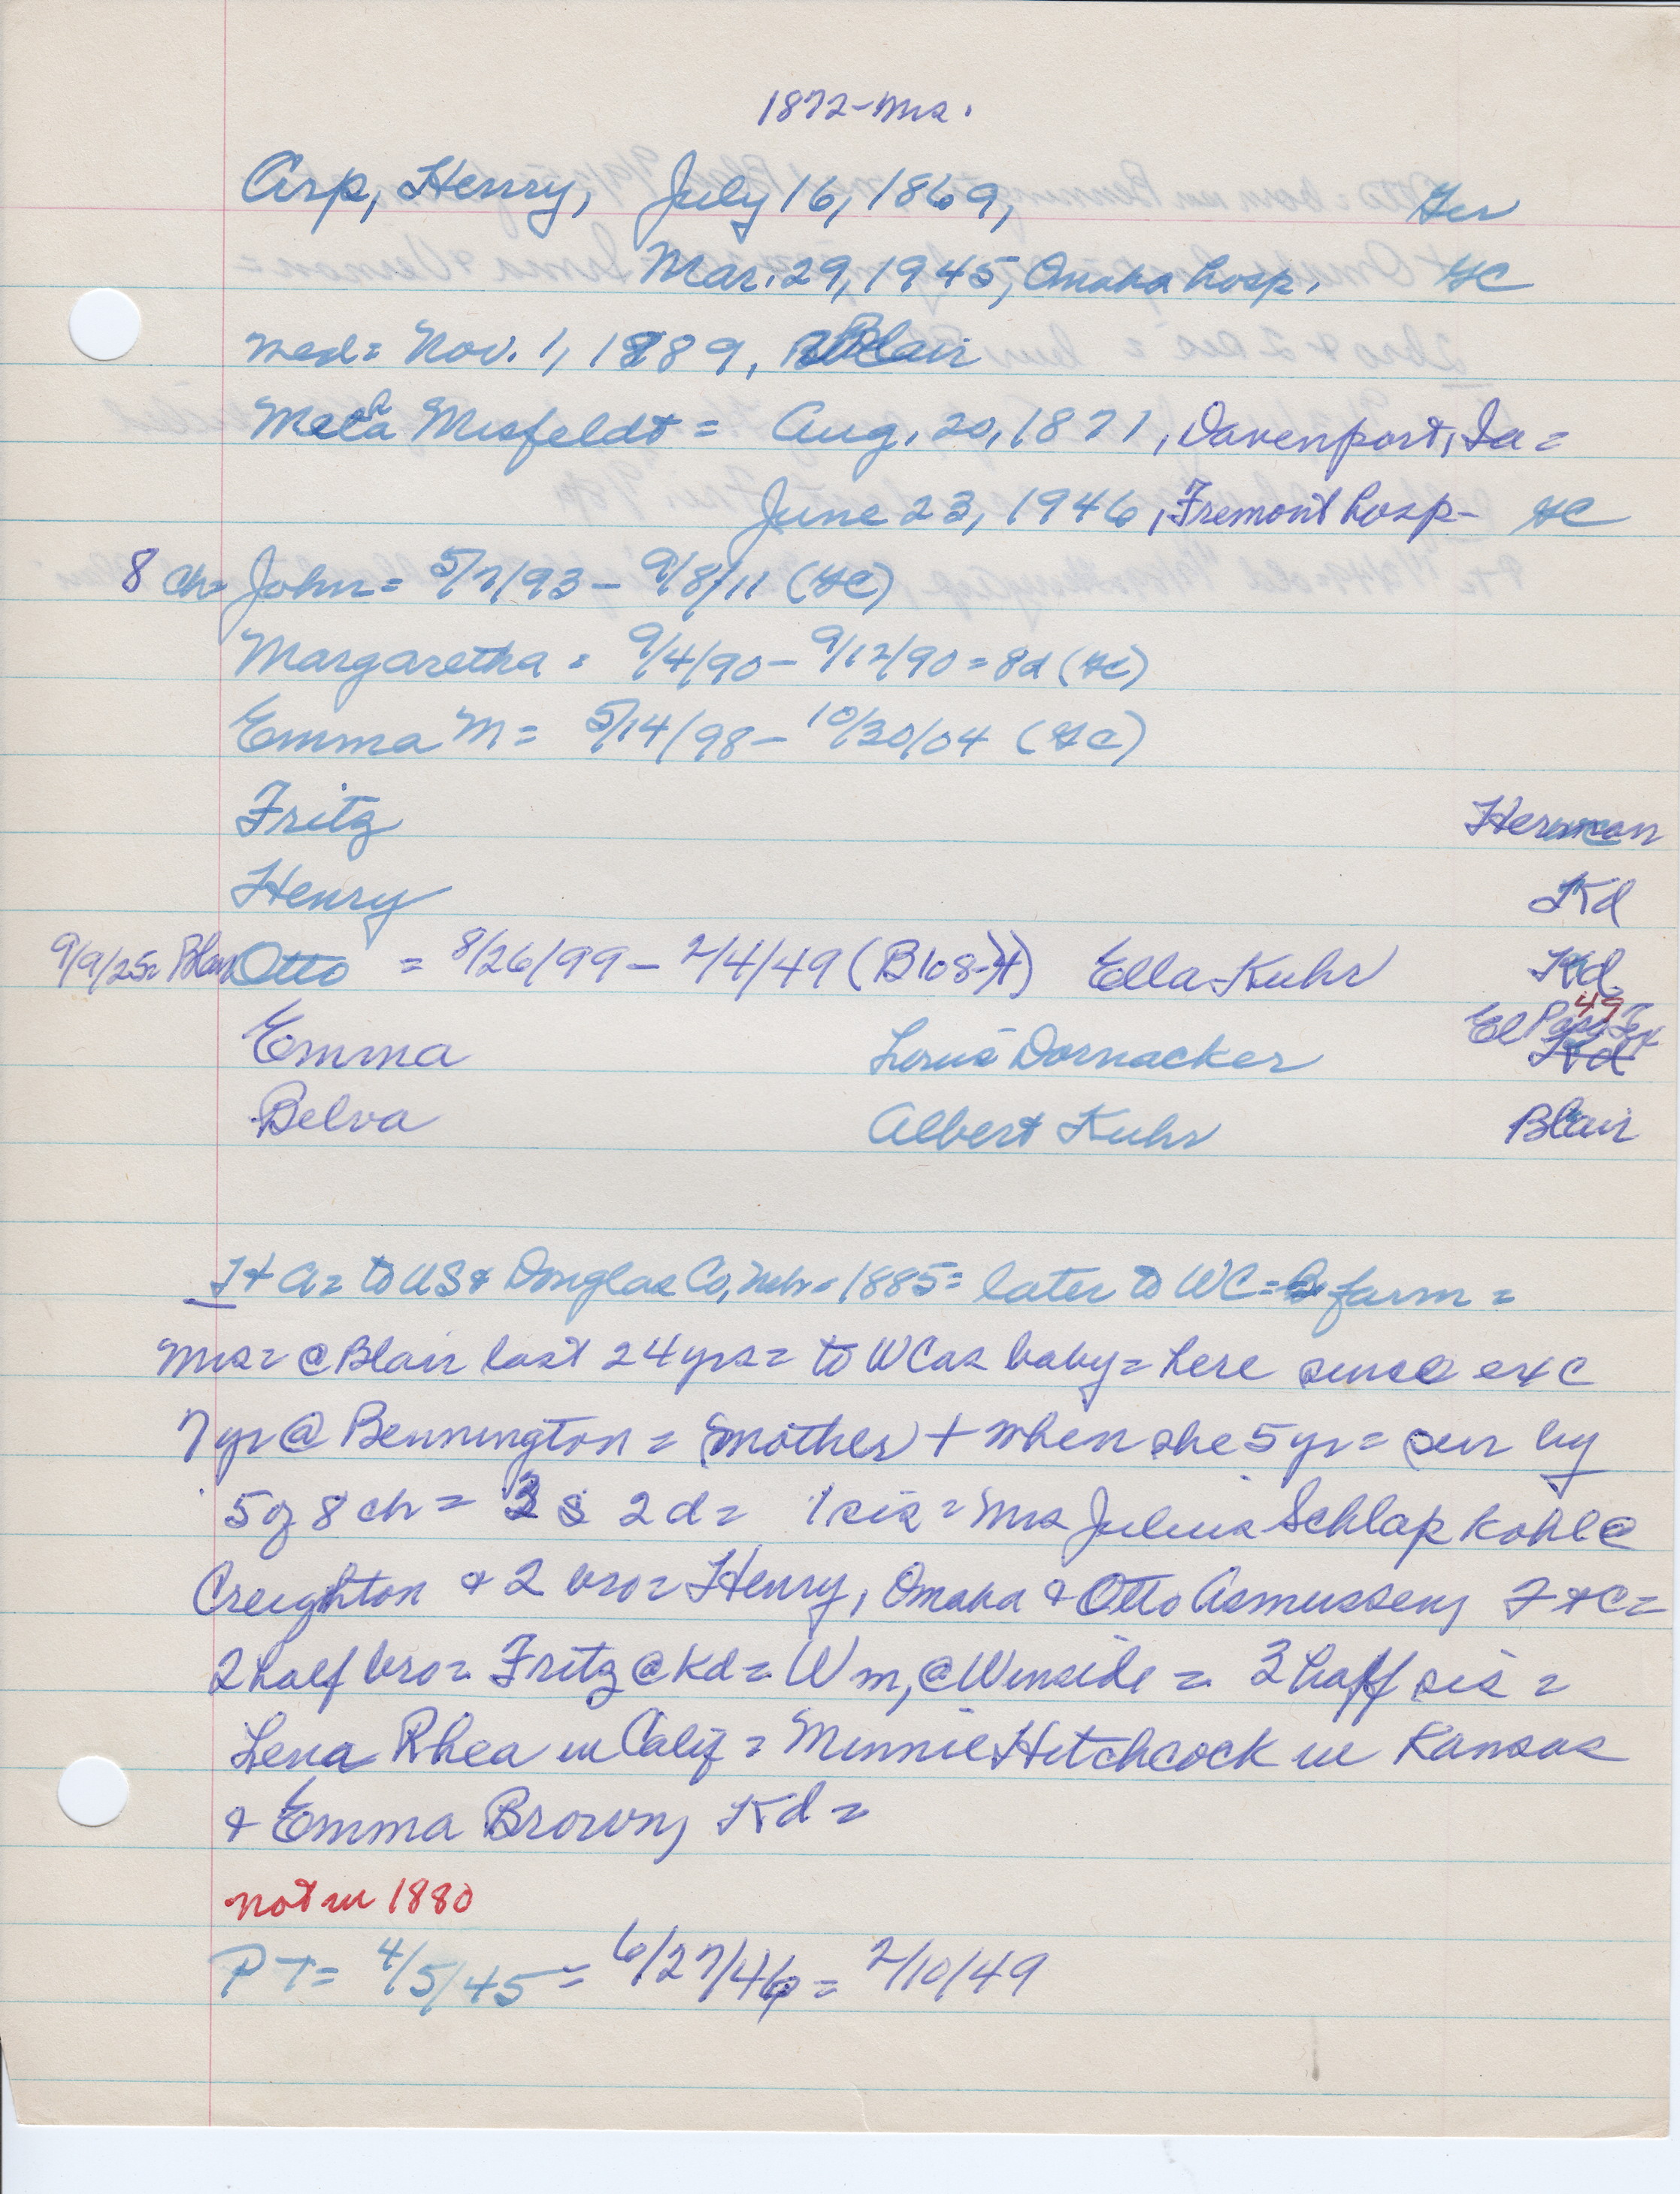 1872-Mrs.
Arp, Henry, July 16, 1869, Ger
Mar. 29, 1945, Omaha hosp. GC
med= Nov. 1, 1889, Blair
Meta Misfeldt = Aug. 20, 1871, Davenport, Ia=
June 23, 1946, Fremont hosp- GC
8 ch= John= 5/7/93 - 9/8/11 (GC)
Margaretha = 9/4/90 - 9/12/90 = 8d (GC)
Emma M = 5/14/98 - 10/30/04 (GC)
Fritz Herman
Henry Kd
9/9/25= Blair Otto = 8/26/99 - 2/4/49 (B108-4) Ella Kuhr Kd
49
El Paso, Tex
Emma Louis Dornacker Kd
Belva Albert Kuhr Blair
= to US & Douglas Co, Neb = 1885 = later to WC = farm =
Mrs = @ Blair last 24 yrs = to WC as baby = here since exc
7 yr @ Bennington = mother + when she 5 yr = sur by
5 of 8 ch = 3 s 2 d = 1 sis = Mrs Julius Schlapkohl @
Creighton & 2 bro = Henry, Omaha & Otto Asmussen, Ft C =
2 half bro = Fritz @ Kd = Wm, @ Winside = 3 half sis =
Lena Rhea in Calif = Minnie Hitchcock in Kansas
& Emma Brown, Kd =
not in 1880
PT = 4/5/45 = 6/27/46 = 2/10/49